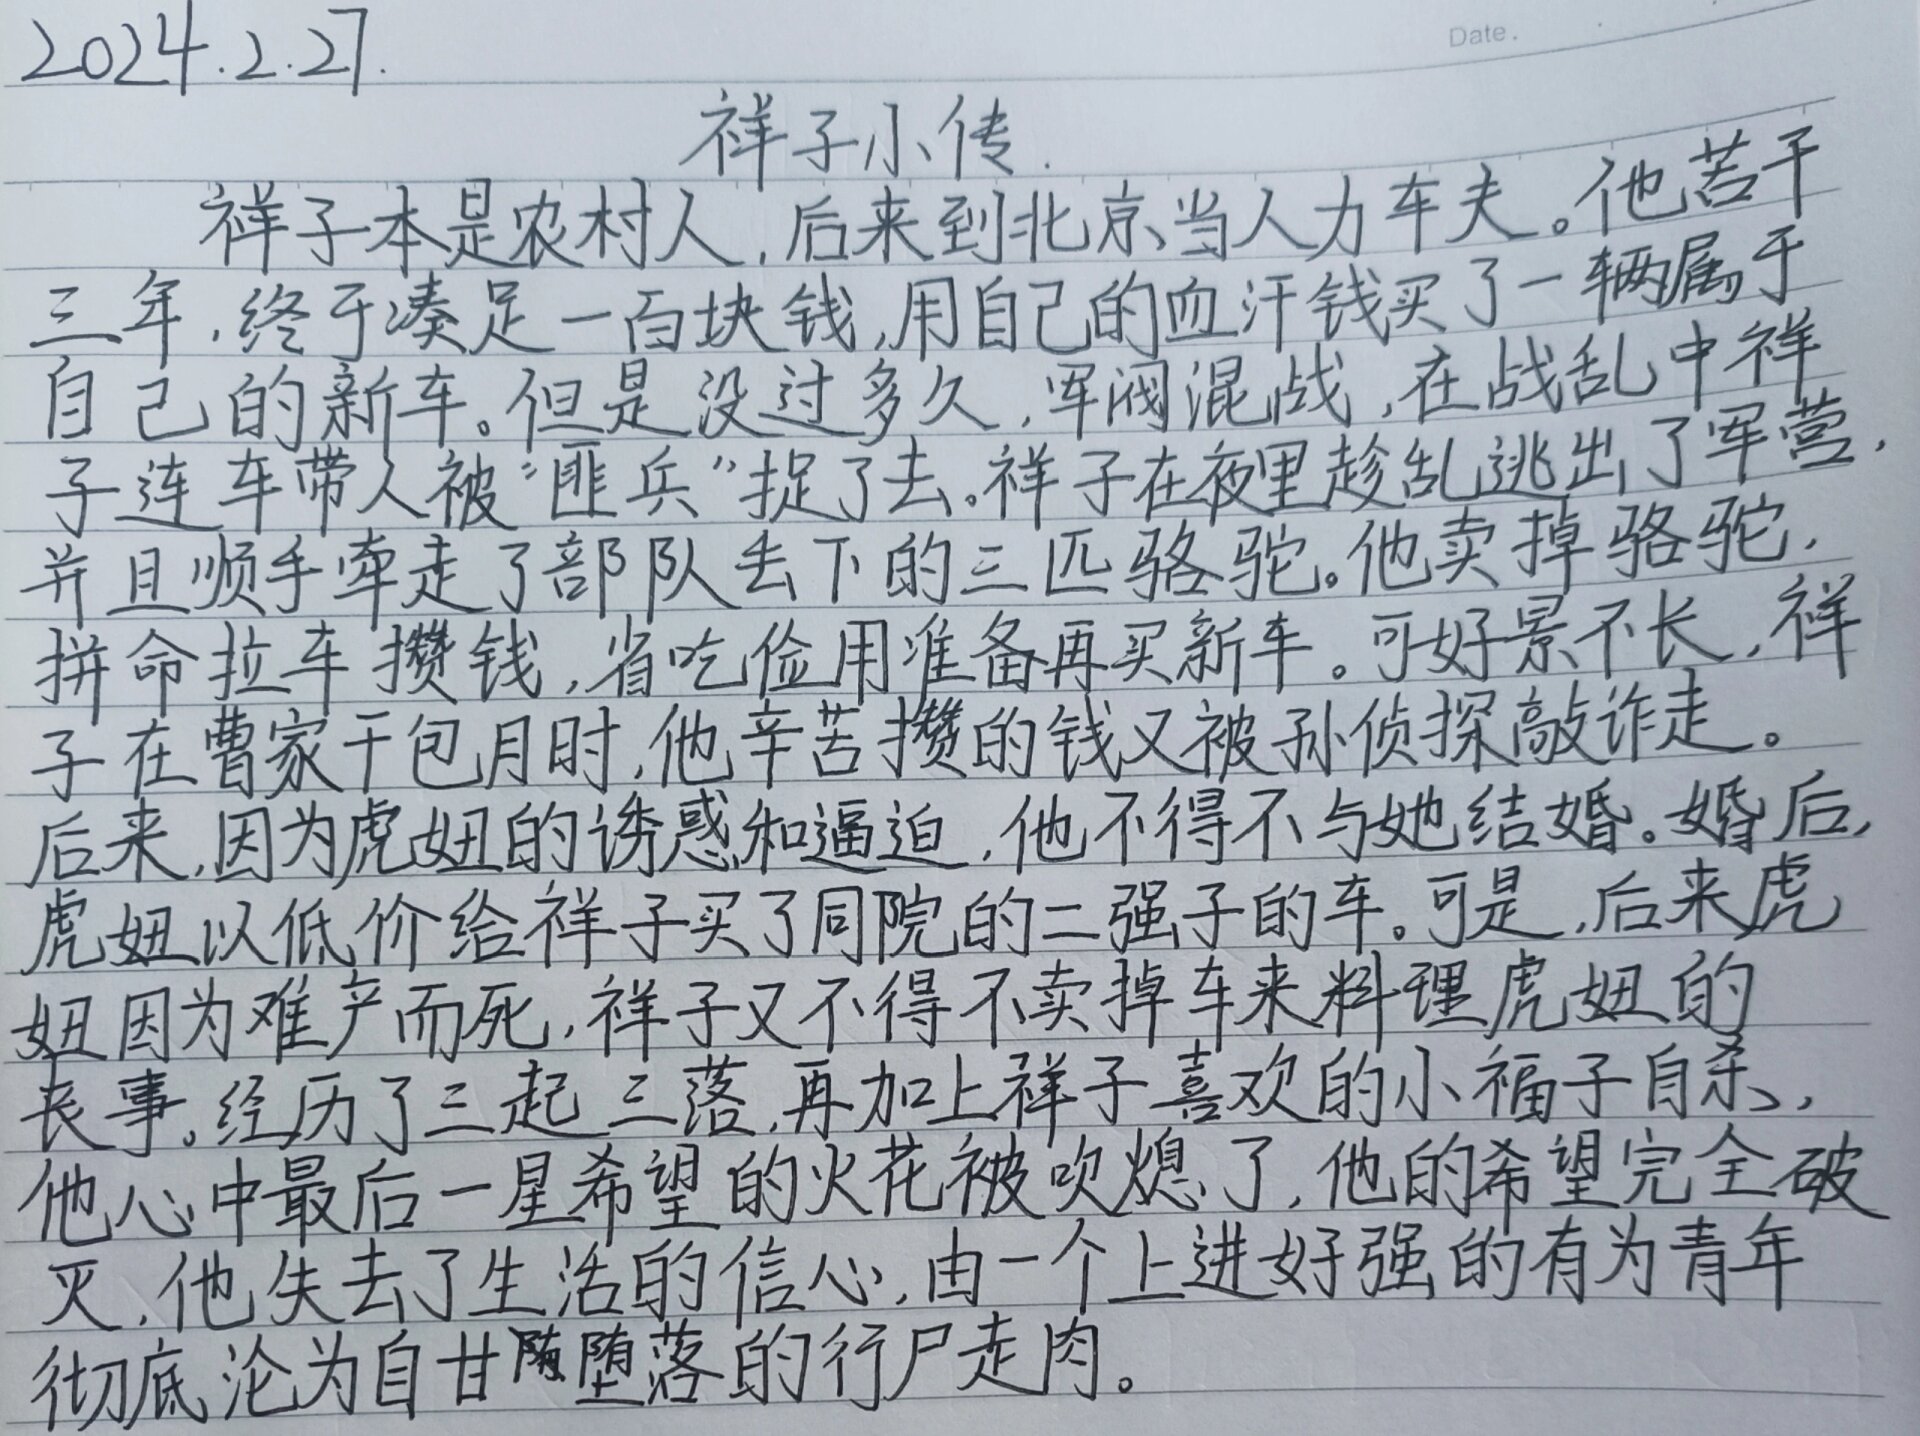 Date.
2024.2.27.
祥子小传.
祥子本是农村人,后来到北京当人力车夫。他苦干
三年,终于凑足一百块钱,用自己的血汗钱买了一辆属于
自己的新车。但是没过多久,军阀混战,在战乱中祥
子连车带人被“匪兵”捉了去。祥子在夜里趁乱逃出了军营,
并且顺手牵走了部队丢下的三匹骆驼。他卖掉骆驼,
拼命拉车攒钱,省吃俭用准备再买新车。可好景不长,祥
子在曹家干包月时,他辛苦攒的钱又被孙侦探敲诈走。
后来,因为虎妞的诱惑和逼迫,他不得不与她结婚。婚后,
虎妞以低价给祥子买了同院的二强子的车。可是,后来虎
妞因为难产而死,祥子又不得不卖掉车来料理虎妞的
丧事。经历了三起三落,再加上祥子喜欢的小福子自杀,
他心中最后一星希望的火花被吹熄了,他的希望完全破
灭,他失去了生活的信心,由一个上进好强的有为青年
彻底沦为自甘堕落的行尸走肉。